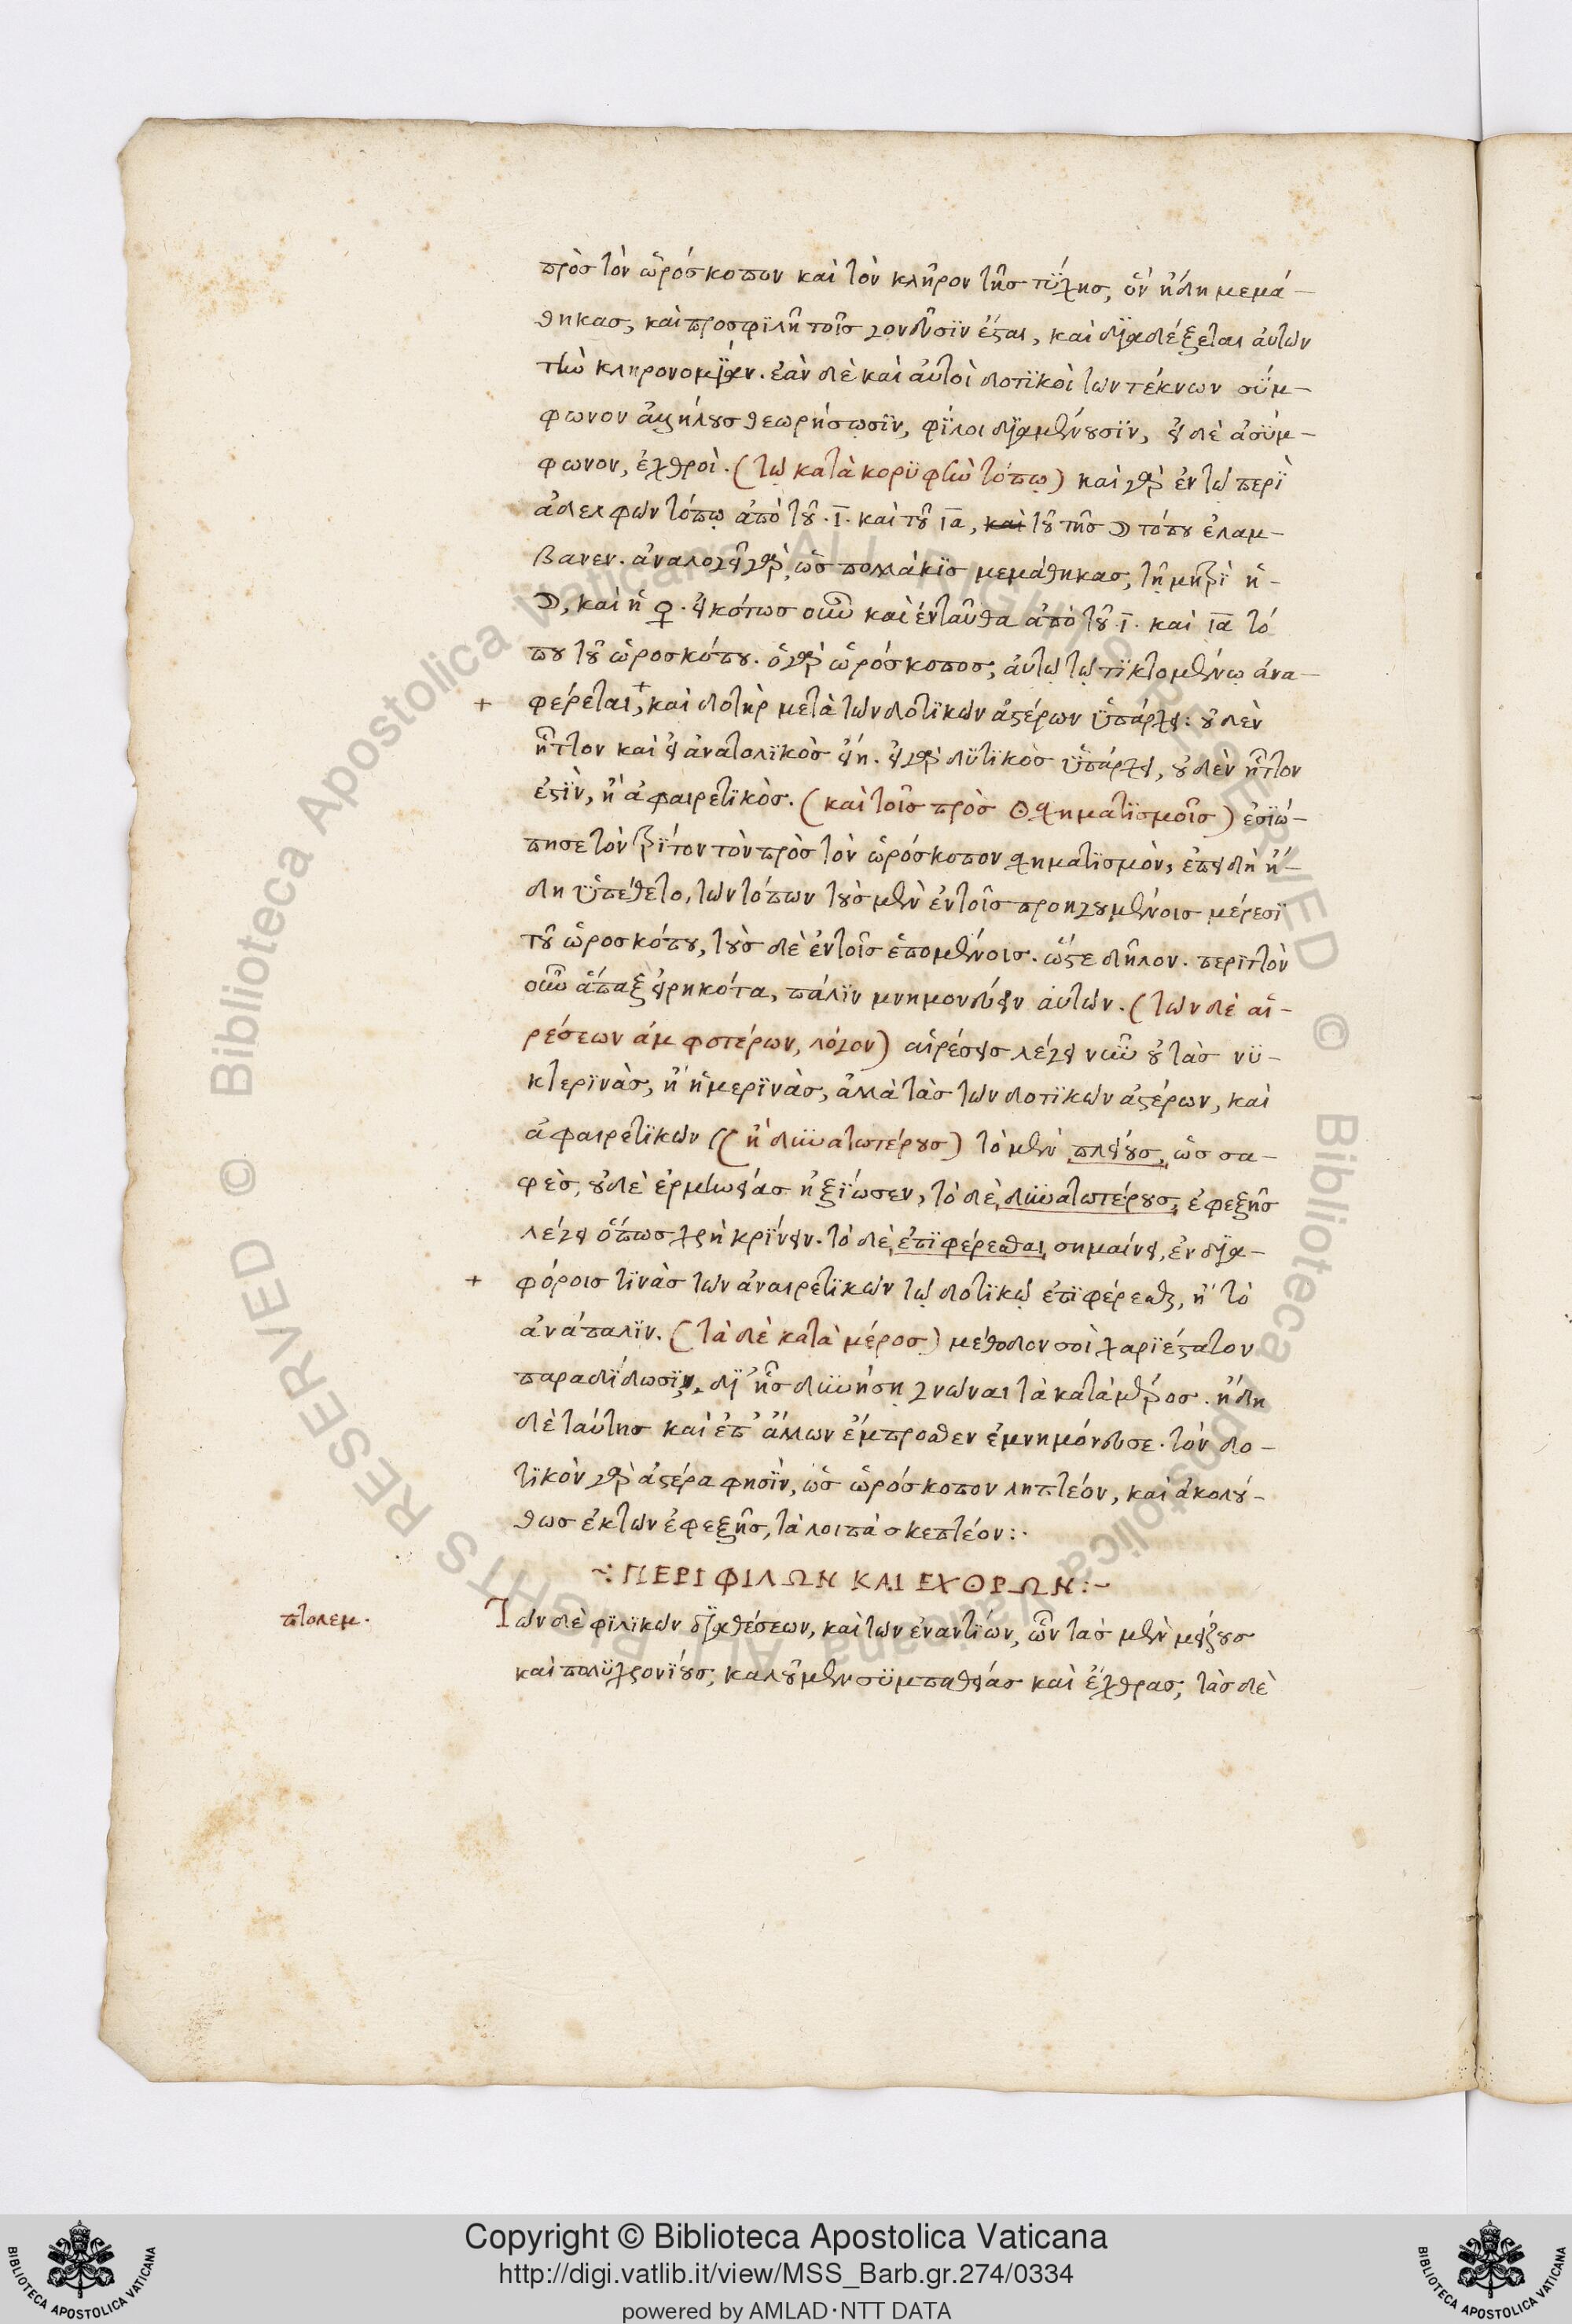 πρὸς τὸν ὡρόσκοπον καὶ τὸν κλῆρον τῆς τύχης, ὃν ἤδη μεμά-
θηκας, καὶ προσφιλῆ τοῖς γονεῦσιν ἔσται, καὶ διαδέξεται αὐτῶν
τὴν κληρονομίαν. ἐὰν δὲ καὶ αὐτοὶ δοτικοὶ τῶν τέκνων σύμ-
φωνον ἀλλήλους θεωρήσωσιν, φίλοι διαμένουσιν, εἰ δὲ ἀσύμ-
φωνον, ἐχθροὶ. (τῷ κατὰ κορυφὴν τόπῳ) καὶ γὰρ ἐν τῷ περὶ
ἀδελφῶν τόπῳ ἀπὸ τοῦ ι καὶ τοῦ ια, καὶ τοῦ τῆς ☽ τόπου ἐλαμ-
βανεν. ἀναλογεῖ γὰρ, ὡς πολλάκις μεμάθηκας, τῇ μητρὶ ἡ
☽, καὶ ἡ ♀. εἰκότως οὖν καὶ ἐνταῦθα ἀπὸ τοῦ ι καὶ ια τό
που τοῦ ὡροσκόπου. ὁ γὰρ ὡρόσκοπος, αὐτῷ τῷ τικτομένῳ ἀνα-
+ φέρεται,+ καὶ δοτὴρ μετὰ τῶν δοτικῶν ἀστέρων ὑπάρχει: οὐδὲν
ἧττον καὶ εἰ ἀνατολικὸς εἴη. εἰ γὰρ δυτικὸς ὑπάρχει, οὐδὲν ἧττον
ἐστὶν, ἢ ἀφαιρετικὸς. (καὶ τοῖς πρὸς ☉ σχηματισμοῖς) ἐσιώ-
πησε τὸν τρίτον τὸν πρὸς τὸν ὡρόσκοπον σχηματισμὸν, ἐπειδὴ ἤ-
δη ὑπέθετο, τῶν τόπων τοὺς μὲν ἐν τοῖς προηγουμένοις μέρεσι
τοῦ ὡροσκόπου, τοὺς δὲ ἐν τοῖς ἑπομένοις. ὥστε δῆλον. περιττὸν
οὖν ἅπαξ εἰρηκότα, πάλιν μνημονεύειν αὐτῶν. (τῶν δὲ αἱ-
ρέσεων ἀμφοτέρων, λόγον) αἱρέσεις λέγει νῦν οὐ τὰς νυ-
κτερινὰς, ἢ ἡμερινὰς, ἀλλὰ τὰς τῶν δοτικῶν ἀστέρων, καὶ
ἀφαιρετικῶν ((ἢ δυνατωτέρους) τὸ μὲν πλείους, ὡς σα-
φὲς, οὐδὲ ἑρμηνείας ἠξίωσεν, τὸ δὲ, δυνατωτέρους, ἐφεξῆς
λέγει ὅπως χρὴ κρίνειν. τὸ δὲ, ἐπιφέρεσθαι, σημαίνει, ἐν δια-
+ φόροις τινὰς τῶν ἀναιρετικῶν τῷ δοτικῷ ἐπιφέρεσθαι, ἢ τὸ
ἀνάπαλιν. (τὰ δὲ κατὰ μέρος) μέθοδον σοὶ χαριέστατον
παραδίδωσιν, δι' ἧς δυνήσῃ γνῶναι τὰ κατὰ μέρος. ἤδη
δὲ ταύτης καὶ ἐπ' ἄλλων ἔμπροσθεν ἐμνημόνευσε. τὸν δο-
τικὸν γὰρ ἀστέρα φησὶν, ὡς ὡρόσκοπον ληπτέον, καὶ ἀκολού-
θως ἐκ τῶν ἐφεξῆς, τὰ λοιπὰ σκεπτέον:.
~: ΠΕΡΙ ΦΙΛΩΝ ΚΑΙ ΕΧΘΡΩΝ:~
πτολεμ.
Τῶν δὲ φιλικῶν διαθέσεων, καὶ τῶν ἐναντίων, ὧν τὰς μὲν μείζους
καὶ πολυχρονίους, καλοῦμεν συμπαθείας καὶ ἔχθρας, τὰς δὲ
Copyright © Biblioteca Apostolica Vaticana
http://digi.vatlib.it/view/MSS_Barb.gr.274/0334
powered by AMLAD·NTT DATA
BIBLIOTECA APOSTOLICA VATICANA
BIBLIOTECA APOSTOLICA VATICANA